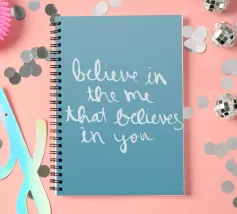 believe in
the me
that believes
in you